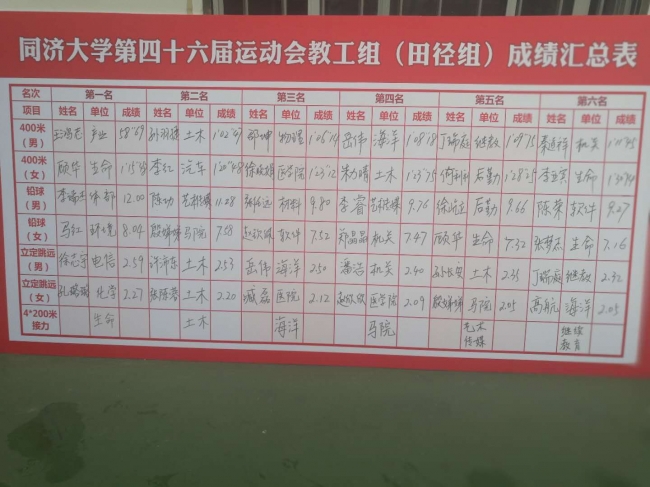 同济大学第四十六届运动会教工组（田径组）成绩汇总表
名次 第一名 第二名 第三名 第四名 第五名 第六名
项目 姓名 单位 成绩 姓名 单位 成绩 姓名 单位 成绩 姓名 单位 成绩 姓名 单位 成绩 姓名 单位 成绩
400米（男） 产业 58"69 土木 1'02"09 物理 岳伟 海洋 1'08"18 丁瑞庭 继教 1'09"75 机关
400米（女） 顾华 生命 李红 汽车 1'20"48 医学院 1'23"12 朱力晴 土木 1'23"75 后勤 生命
铅球（男） 体部 12.00 陈功 艺术传媒 11.28 材料 9.80 李睿 艺术传媒 9.76 后勤 9.66 陈荣 软件 9.27
铅球（女） 马红 环境 8.04 马院 7.58 赵欣媛 软件 7.52 郑晶晶 机关 7.47 顾华 生命 7.32 张梦杰 生命 7.16
立定跳远（男） 电信 2.59 土木 2.53 岳伟 海洋 2.50 潘浩 机关 2.40 孙长安 土木 2.35 丁瑞庭 继教 2.32
立定跳远（女） 化学 2.27 土木 2.20 臧磊 医院 2.12 医学院 2.09 马院 2.05 高航 海洋 2.05
4*200米接力 生命 土木 海洋 马院 艺术传媒 继续教育